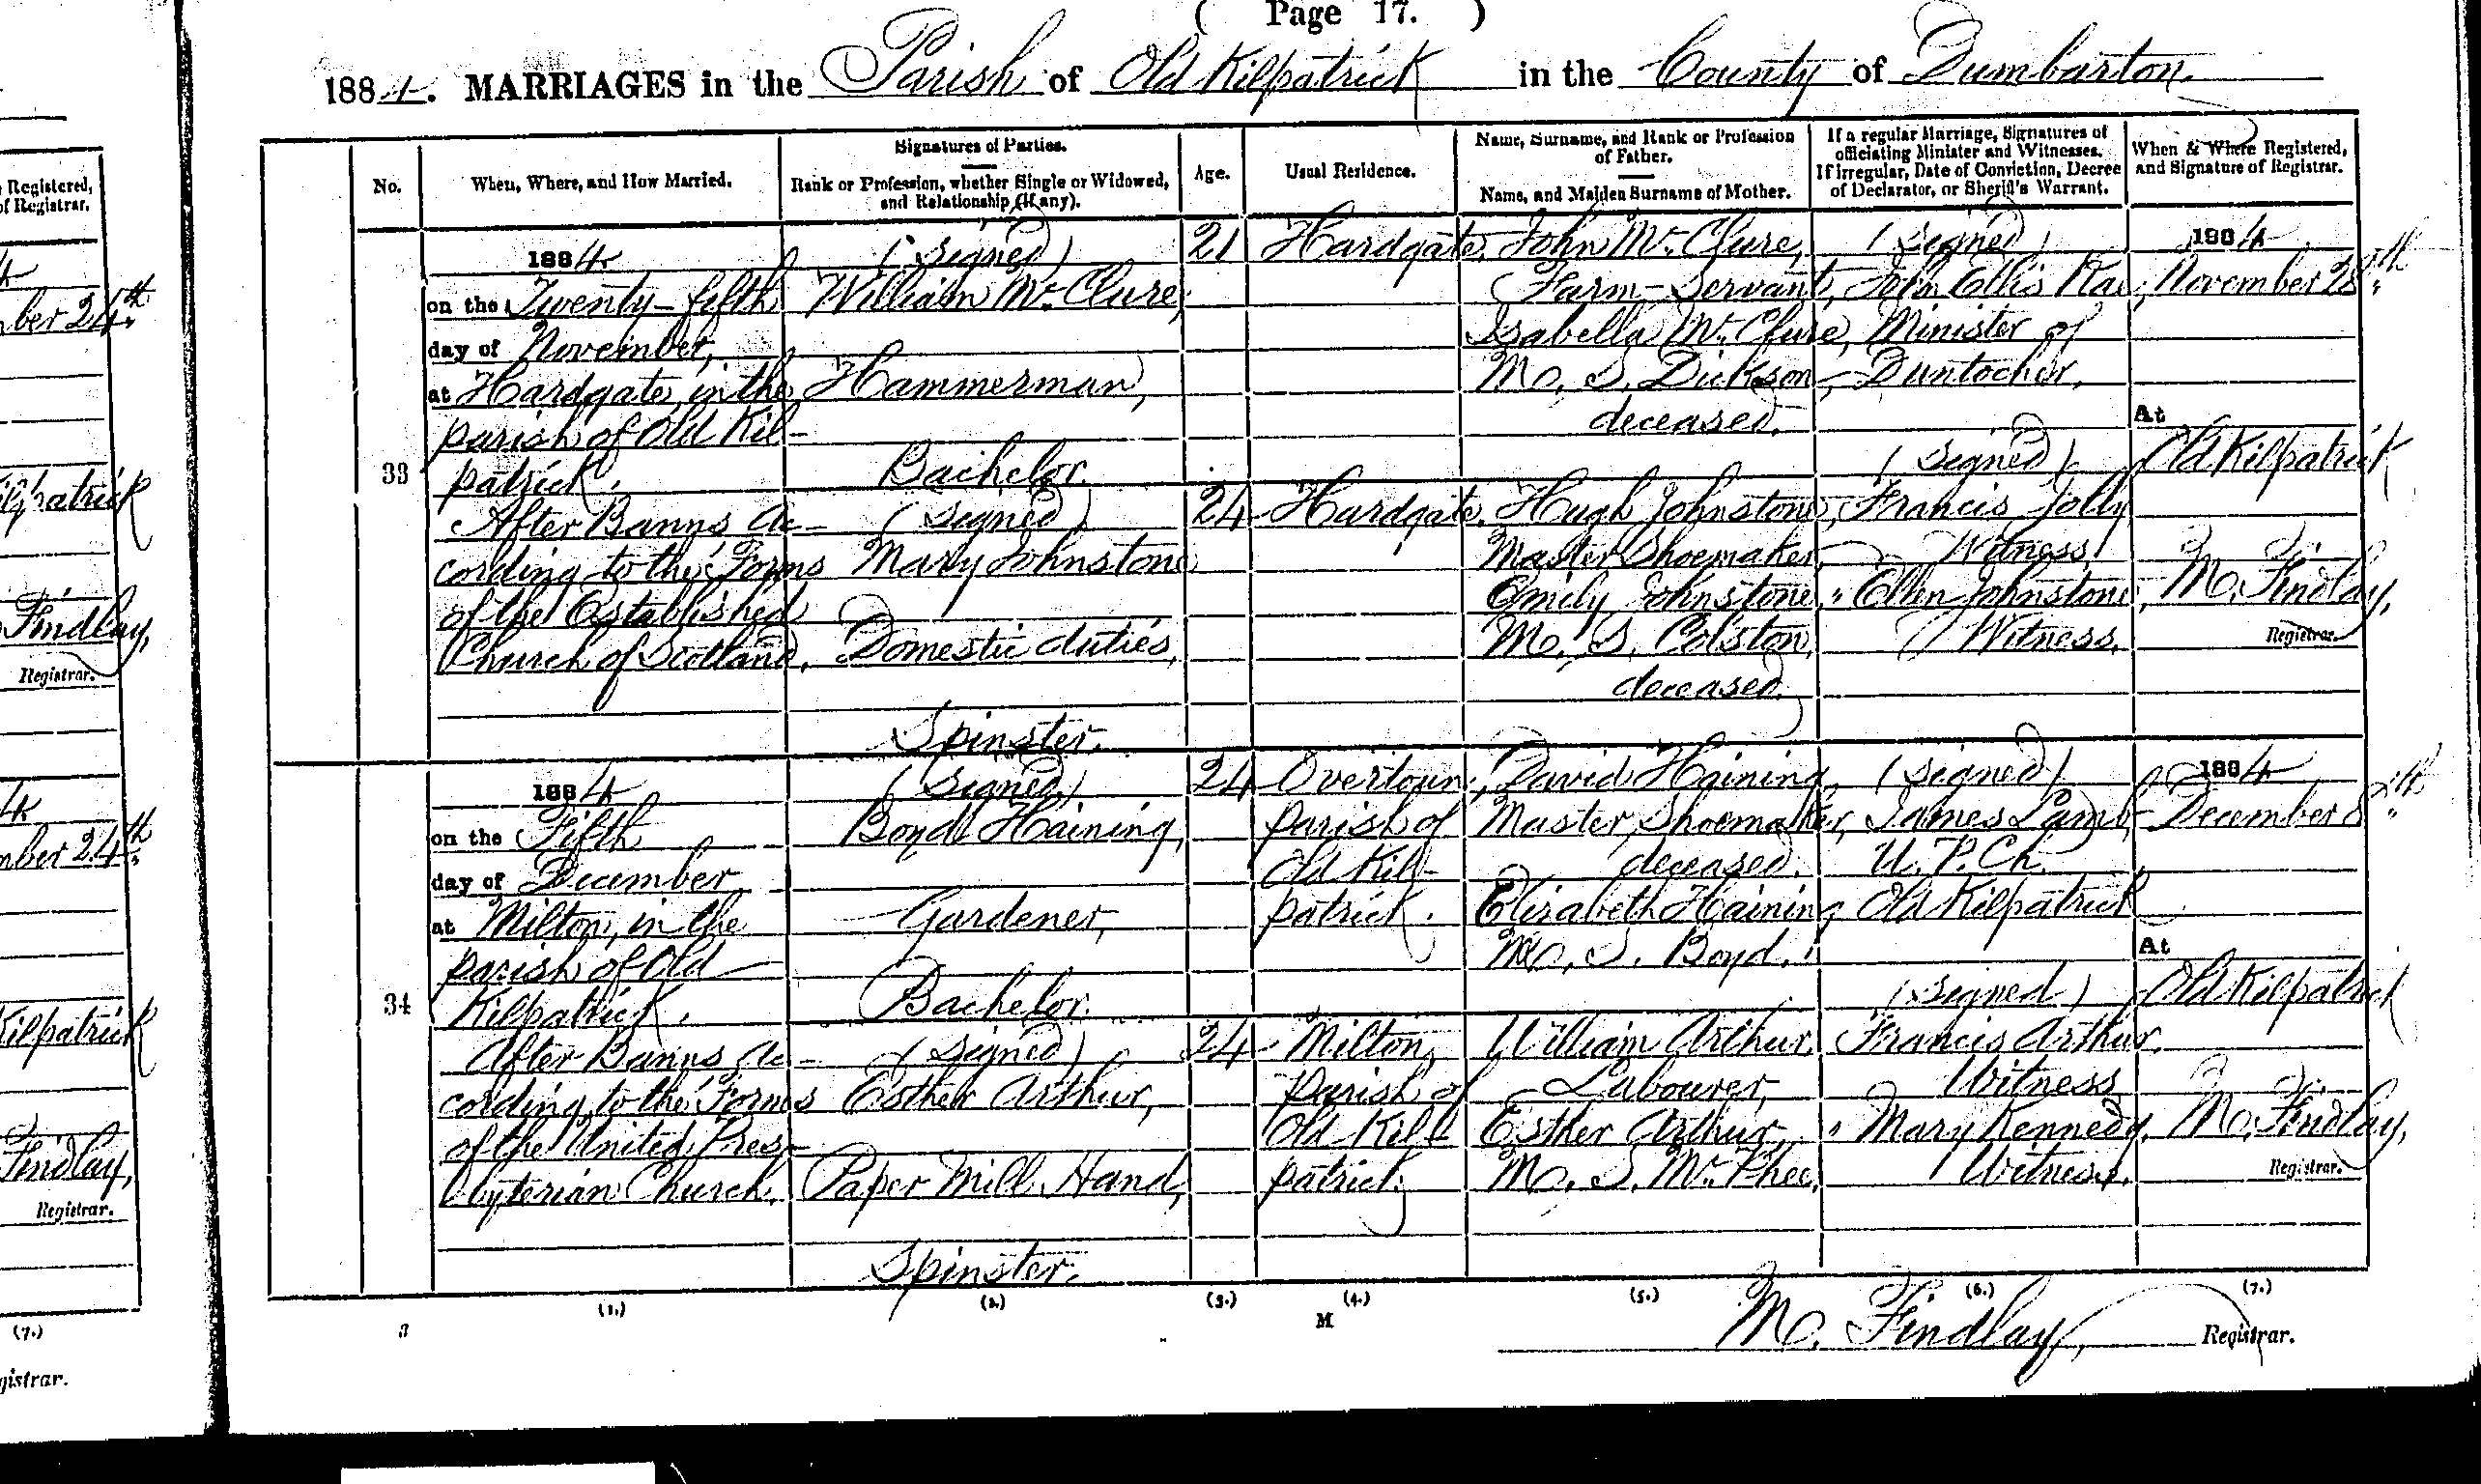 ( Page 17. )
1884. MARRIAGES in the Parish of Old Kilpatrick in the County of Dumbarton.
No.
When, Where, and How Married.
Signatures of Parties.
Rank or Profession, whether Single or Widowed,
and Relationship (if any).
Age.
Usual Residence.
Name, Surname, and Rank or Profession
of Father.
Name, and Maiden Surname of Mother.
If a regular Marriage, Signatures of
officiating Minister and Witnesses.
If irregular, Date of Conviction, Decree
of Declarator, or Sheriff's Warrant.
When & Where Registered,
and Signature of Registrar.
33
1884
on the Twenty-fifth
day of November,
at Hardgate, in the
parish of Old Kil-
patrick.
After Banns Ac-
cording to the Forms
of the Established
Church of Scotland.
(signed)
William McClure,
Hammerman,
Bachelor.
(signed)
Mary Johnstone
Domestic duties,
Spinster.
21
24
Hardgate.
Hardgate.
John McClure,
Farm-Servant,
Isabella McClure,
M. S. Dickson,
deceased.
Hugh Johnstone,
Master Shoemaker,
Emily Johnstone,
M. S. Colston,
deceased.
(signed)
John Ellis Rae,
Minister of
Duntocher.
(signed)
Francis Jolly
Witness
" Ellen Johnstone,
Witness.
1884
November 28th
At
Old Kilpatrick
M. Findlay,
Registrar.
34
1884
on the Fifth
day of December
at Milton, in the
parish of Old
Kilpatrick.
After Banns Ac-
cording to the Forms
of the United Pres-
byterian Church.
(signed)
Boyd Haining,
Gardener,
Bachelor.
(signed)
Esther Arthur,
Paper Mill Hand,
Spinster.
24
24
Overtoun,
parish of
Old Kil-
patrick.
Milton,
Parish of
Old Kil-
patrick.
David Haining,
Master Shoemaker,
deceased.
Elizabeth Haining
M. S. Boyd.
William Arthur,
Labourer,
Esther Arthur,
M. S. McPhee.
(signed)
James Lamb
U. P. Ch.
Old Kilpatrick
(signed)
Francis Arthur,
Witness
" Mary Kennedy,
Witness.
1884
December 8th
At
Old Kilpatrick
M. Findlay,
Registrar.
(1.) (2.) (3.) (4.) (5.) (6.) (7.)
M
M. Findlay, Registrar.
Registered,
of Registrar.
4
ber 24th
Kilpatrick
Findlay,
Registrar.
4
mber 24th
Kilpatrick
Findlay,
Registrar.
(7.)
gistrar.